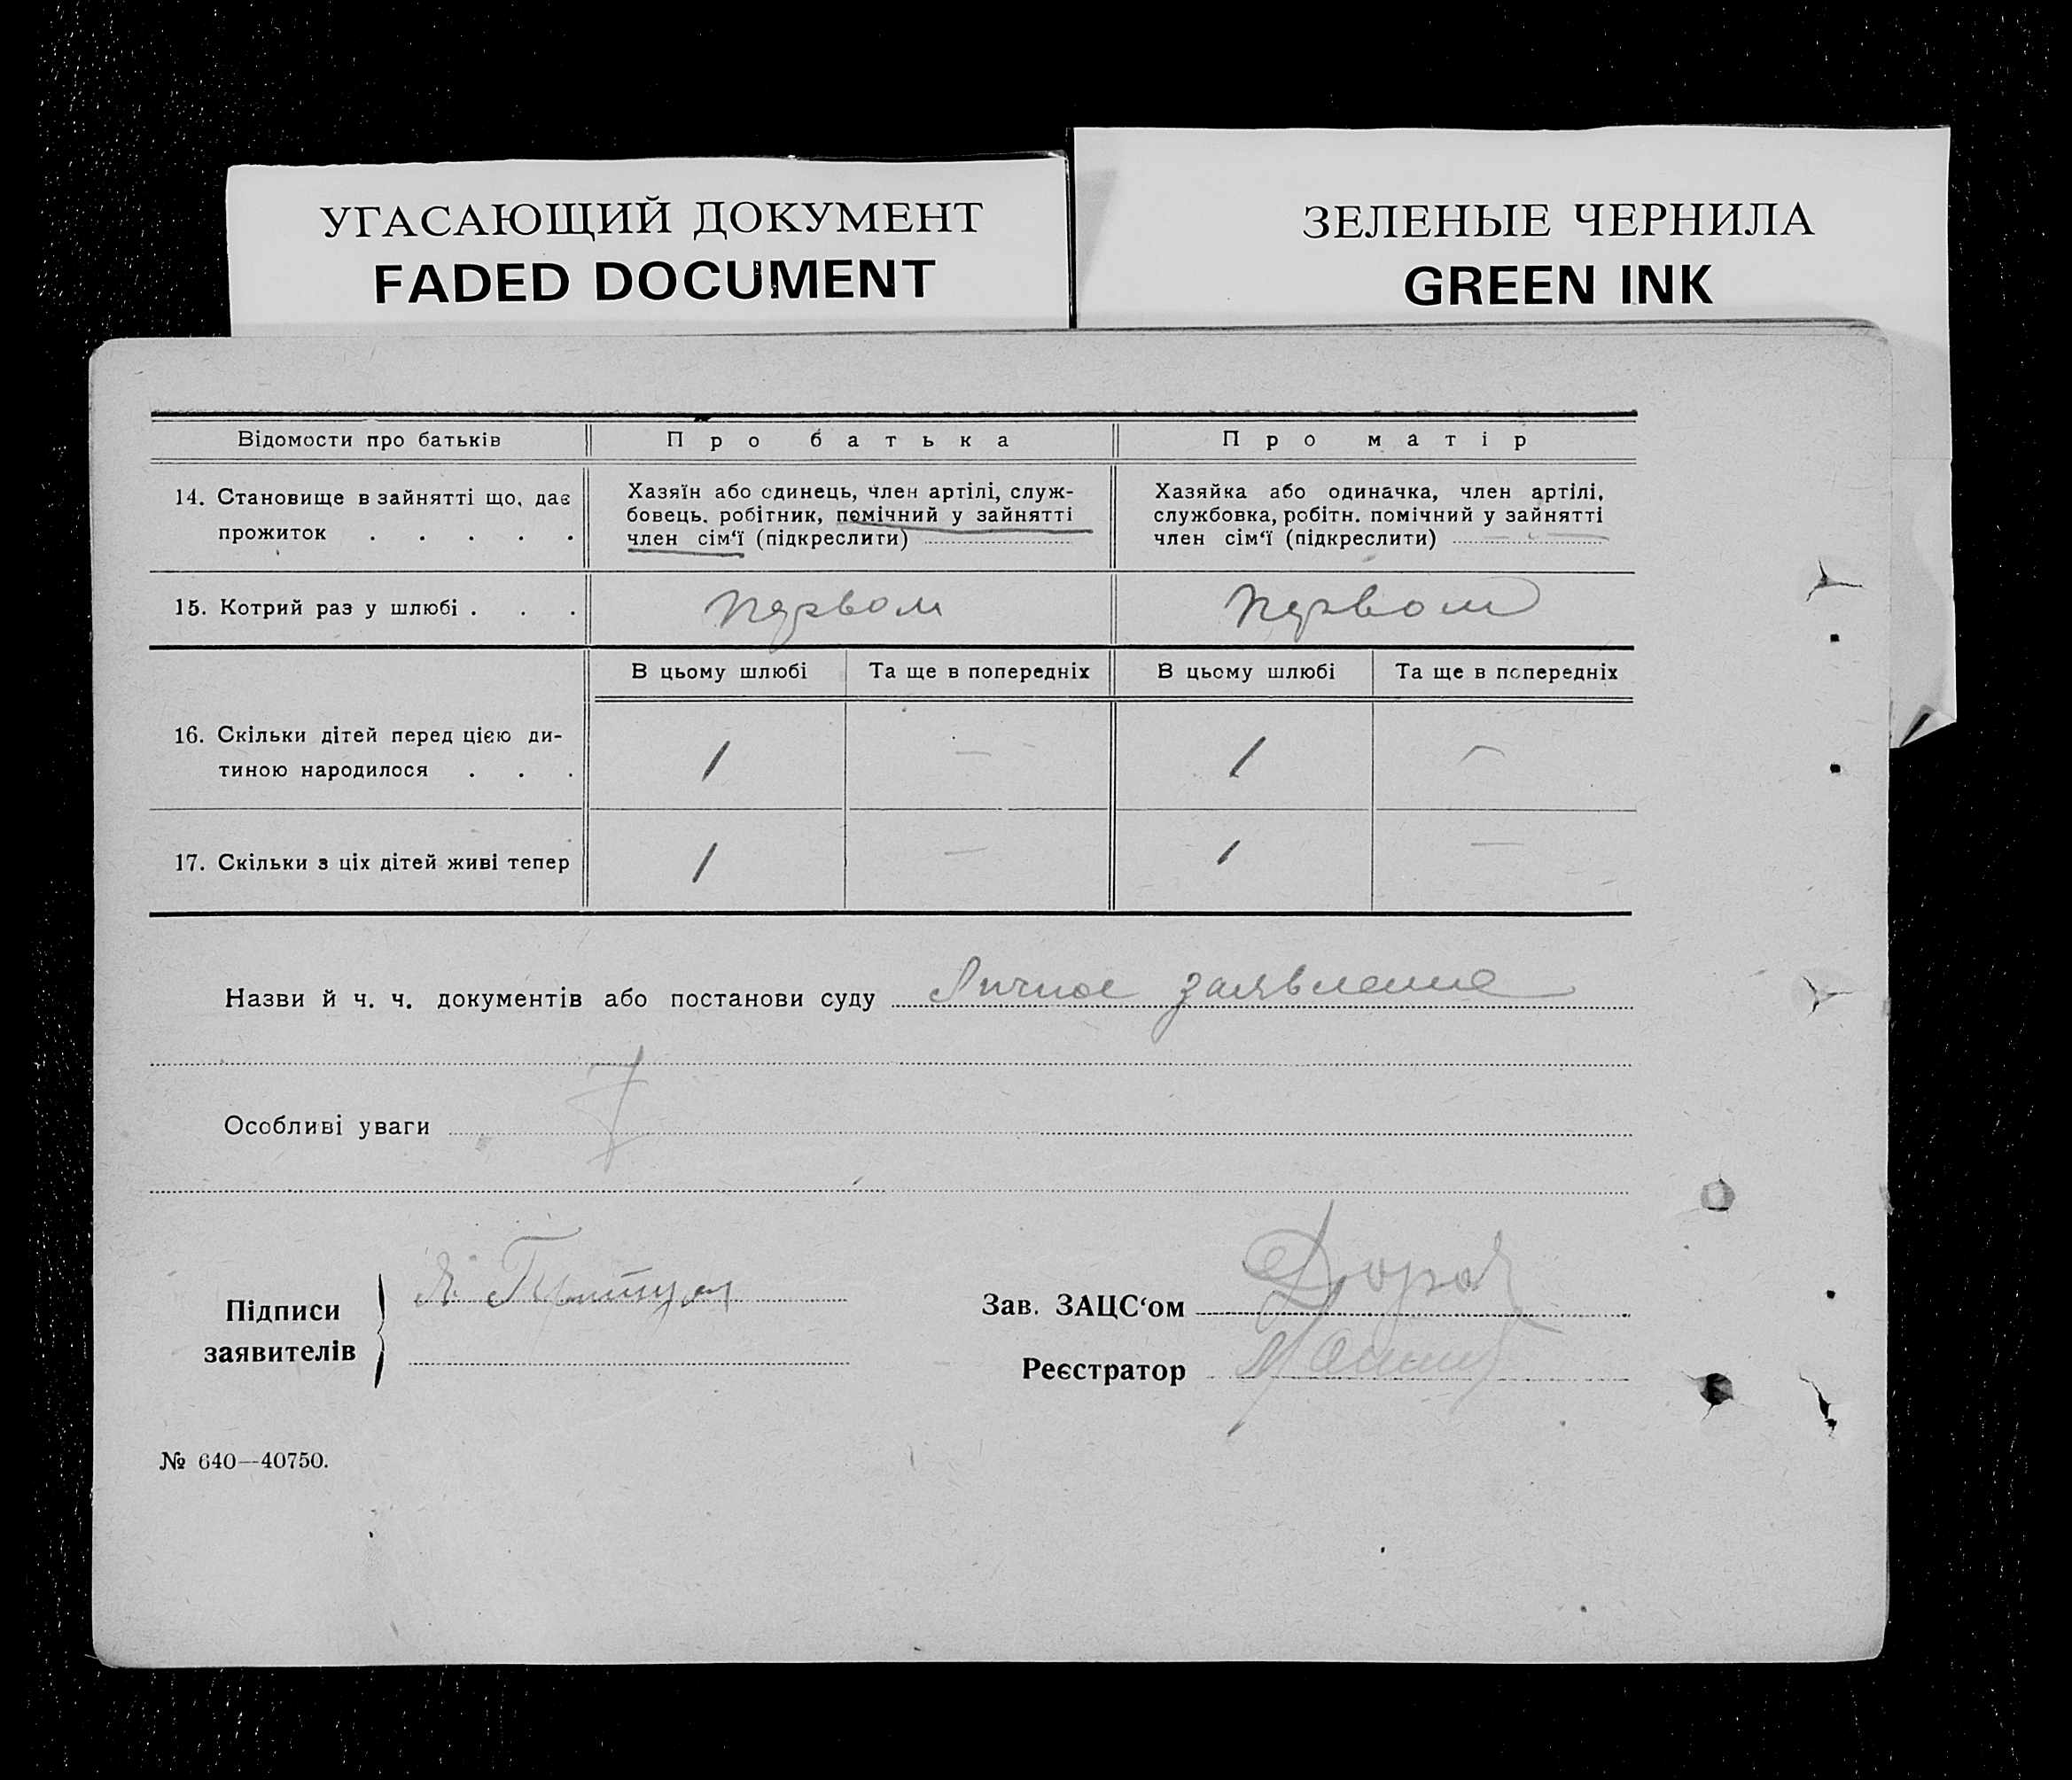 УГАСАЮЩИЙ ДОКУМЕНТ
FADED DOCUMENT
ЗЕЛЕНЫЕ ЧЕРНИЛА
GREEN INK
Відомости про батьків
Про батька
Про матір
14. Становище в зайнятті що, дає
прожиток . . . . .
Хазяїн або єдинець, член артілі, служ-
бовець. робітник, помічний у зайнятті
член сім‘ї (підкреслити)
Хазяйка або одиначка, член артілі,
службовка, робітн. помічний у зайнятті
член сім‘ї (підкреслити)
15. Котрий раз у шлюбі . . .
первом
первом
В цьому шлюбі
Та ще в попередніх
В цьому шлюбі
Та ще в попередніх
16. Скільки дітей перед цією ди-
тиною народилося . . .
1
—
1
—
17. Скільки з ціх дітей живі тепер
1
—
1
—
Назви й ч. ч. документів або постанови суду Личное заявление
Особливі уваги
Підписи
заявителів
Зав. ЗАЦС‘ом
Реєстратор
№ 640—40750.